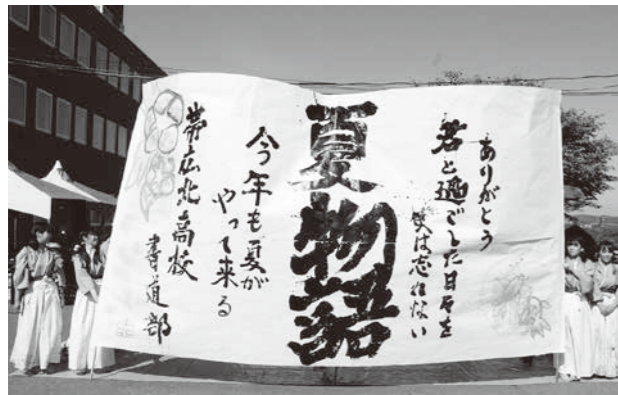 ありがとう
君と過ごした日々を
僕は忘れない
夏物語
今年も夏が
やって来る
帯広北高校
書道部